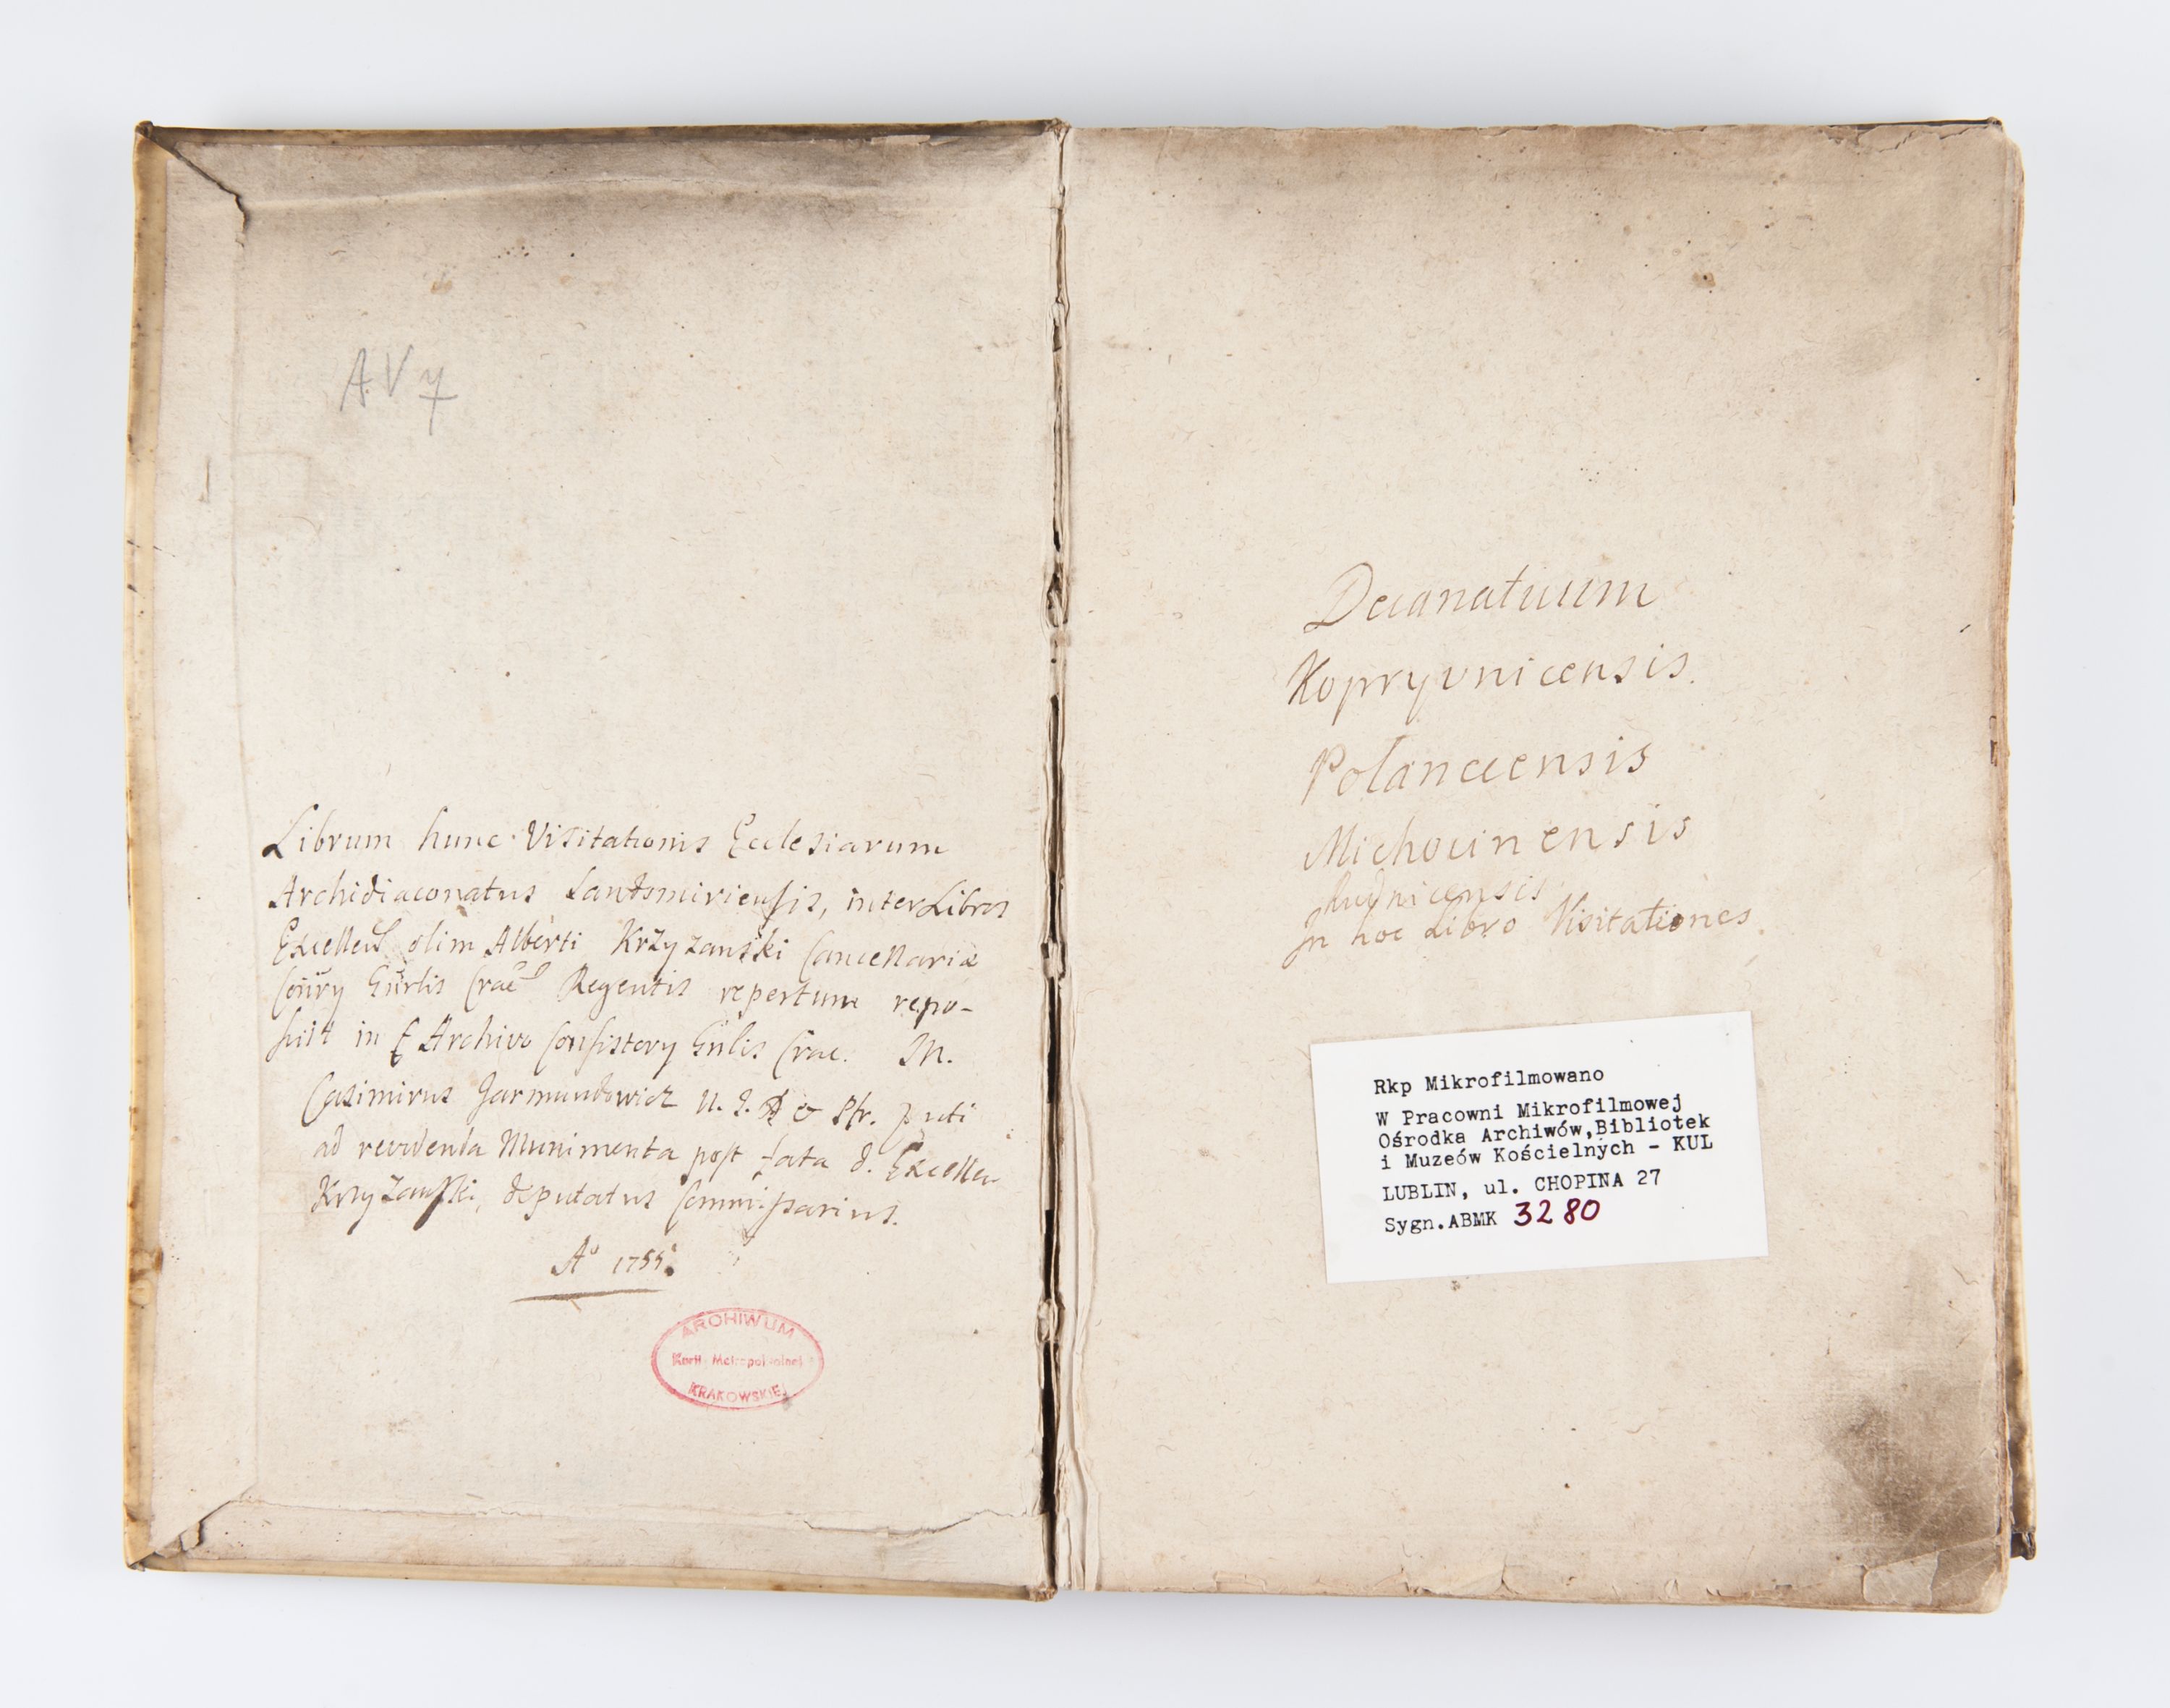 A.V 7
Librum hunc Visitationis Ecclesiarum
Archidiaconatus Sandomiriensis, inter Libros
Excellent olim Alberti Krzyzanski Cancellariæ
Gnrlis Crac Regentis repertum repo-
suit in Archivo Consistory Gnlis Crac. M.
Casimirus Jarmundowicz U. J. & Pfr.
ad revidenda Munimenta post fata d. Excellen
Krzyzanski, deputatus Commissarius.
Aº 1755.
ARCHIWUM
Kurii Metropolitalnej
KRAKOWSKIEJ
Decanatuum
Kopryvnicensis.
Polanecensis
Michocinensis
Rudnicensis
In hoc Libro Visitationes.
Rkp Mikrofilmowano
W Pracowni Mikrofilmowej
Ośrodka Archiwów,Bibliotek
i Muzeów Kościelnych - KUL
LUBLIN, ul. CHOPINA 27
Sygn.ABMK 3280